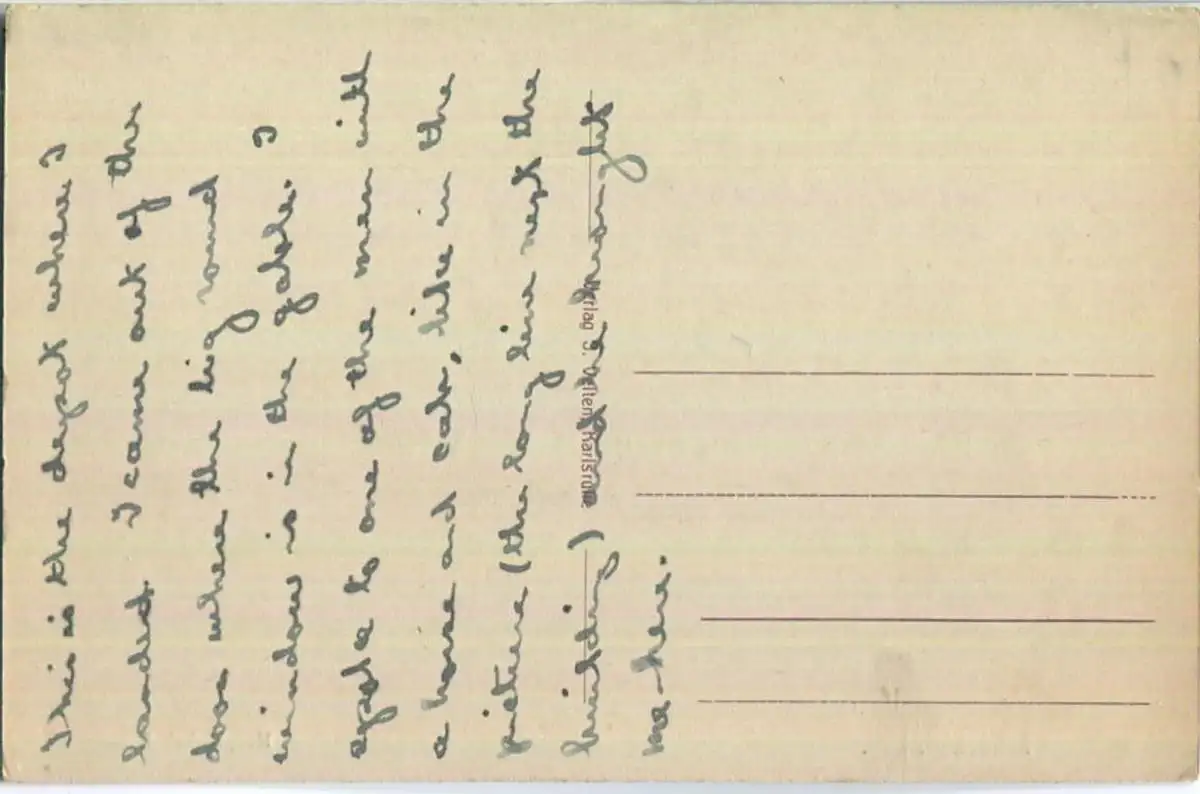 This is the depot where I
landed. I came out of the
door where the big round
window is in the gable. I
spoke to one of the men with
a horse and cab, like in the
picture (the long line next the
building) and he brought
me here.
Verlag J. Velten, Karlsruhe.